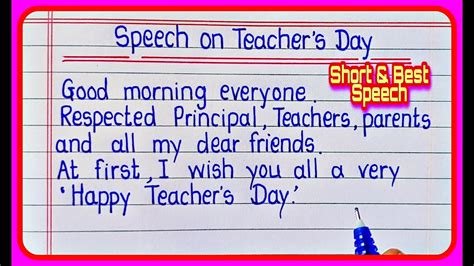 Speech on Teacher's Day
Short & Best
Speech
Good morning everyone.
Respected Principal, Teachers, parents
and all my dear friends.
At first, I wish you all a very
'Happy Teacher's Day.'